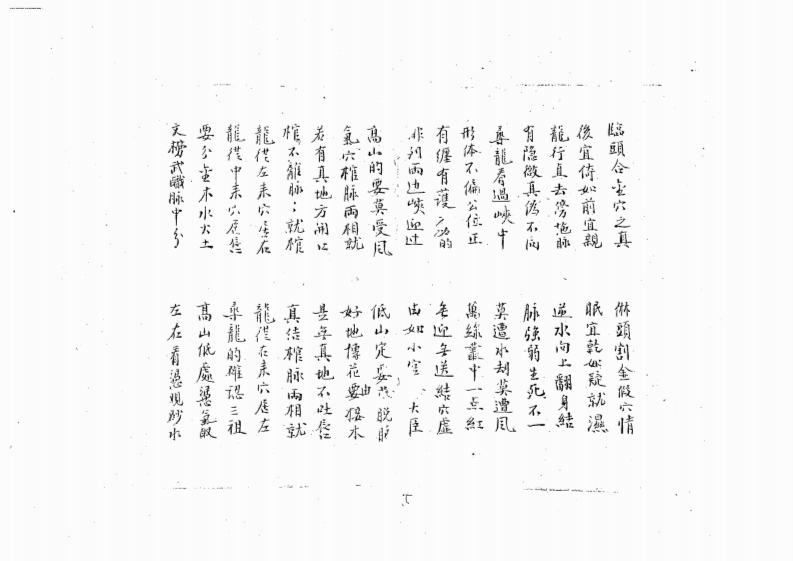 臨頭合金穴之真
淋頭割金假穴情
後宜倚如前宜親
眠宜乾如疑就濕
龍行直去旁地脉
逆水向上翻身結
有隐微真偽不同
脉強弱生死不一
尋龍看過峽中
莫遭水刼莫遭風
形体不偏公位正
萬絲叢中一点紅
有纏有護的
無迎無送結穴虛
排列兩边峽迎过
由如小官、大臣
高山的要莫受風
低山定要脱脉
氣穴棺脉兩相就
好地博花要接木
若有真地方開口
是無真地不吐唇
棺不離脉;就棺
真結棺脉兩相就
龍從左來穴居右
龍從右來穴居左
龍從中來穴居唇
尋龍的確認三祖
要分金木水火土
高山低處塟氣取
文榜武職脉中分
左右看塟規砂水
5